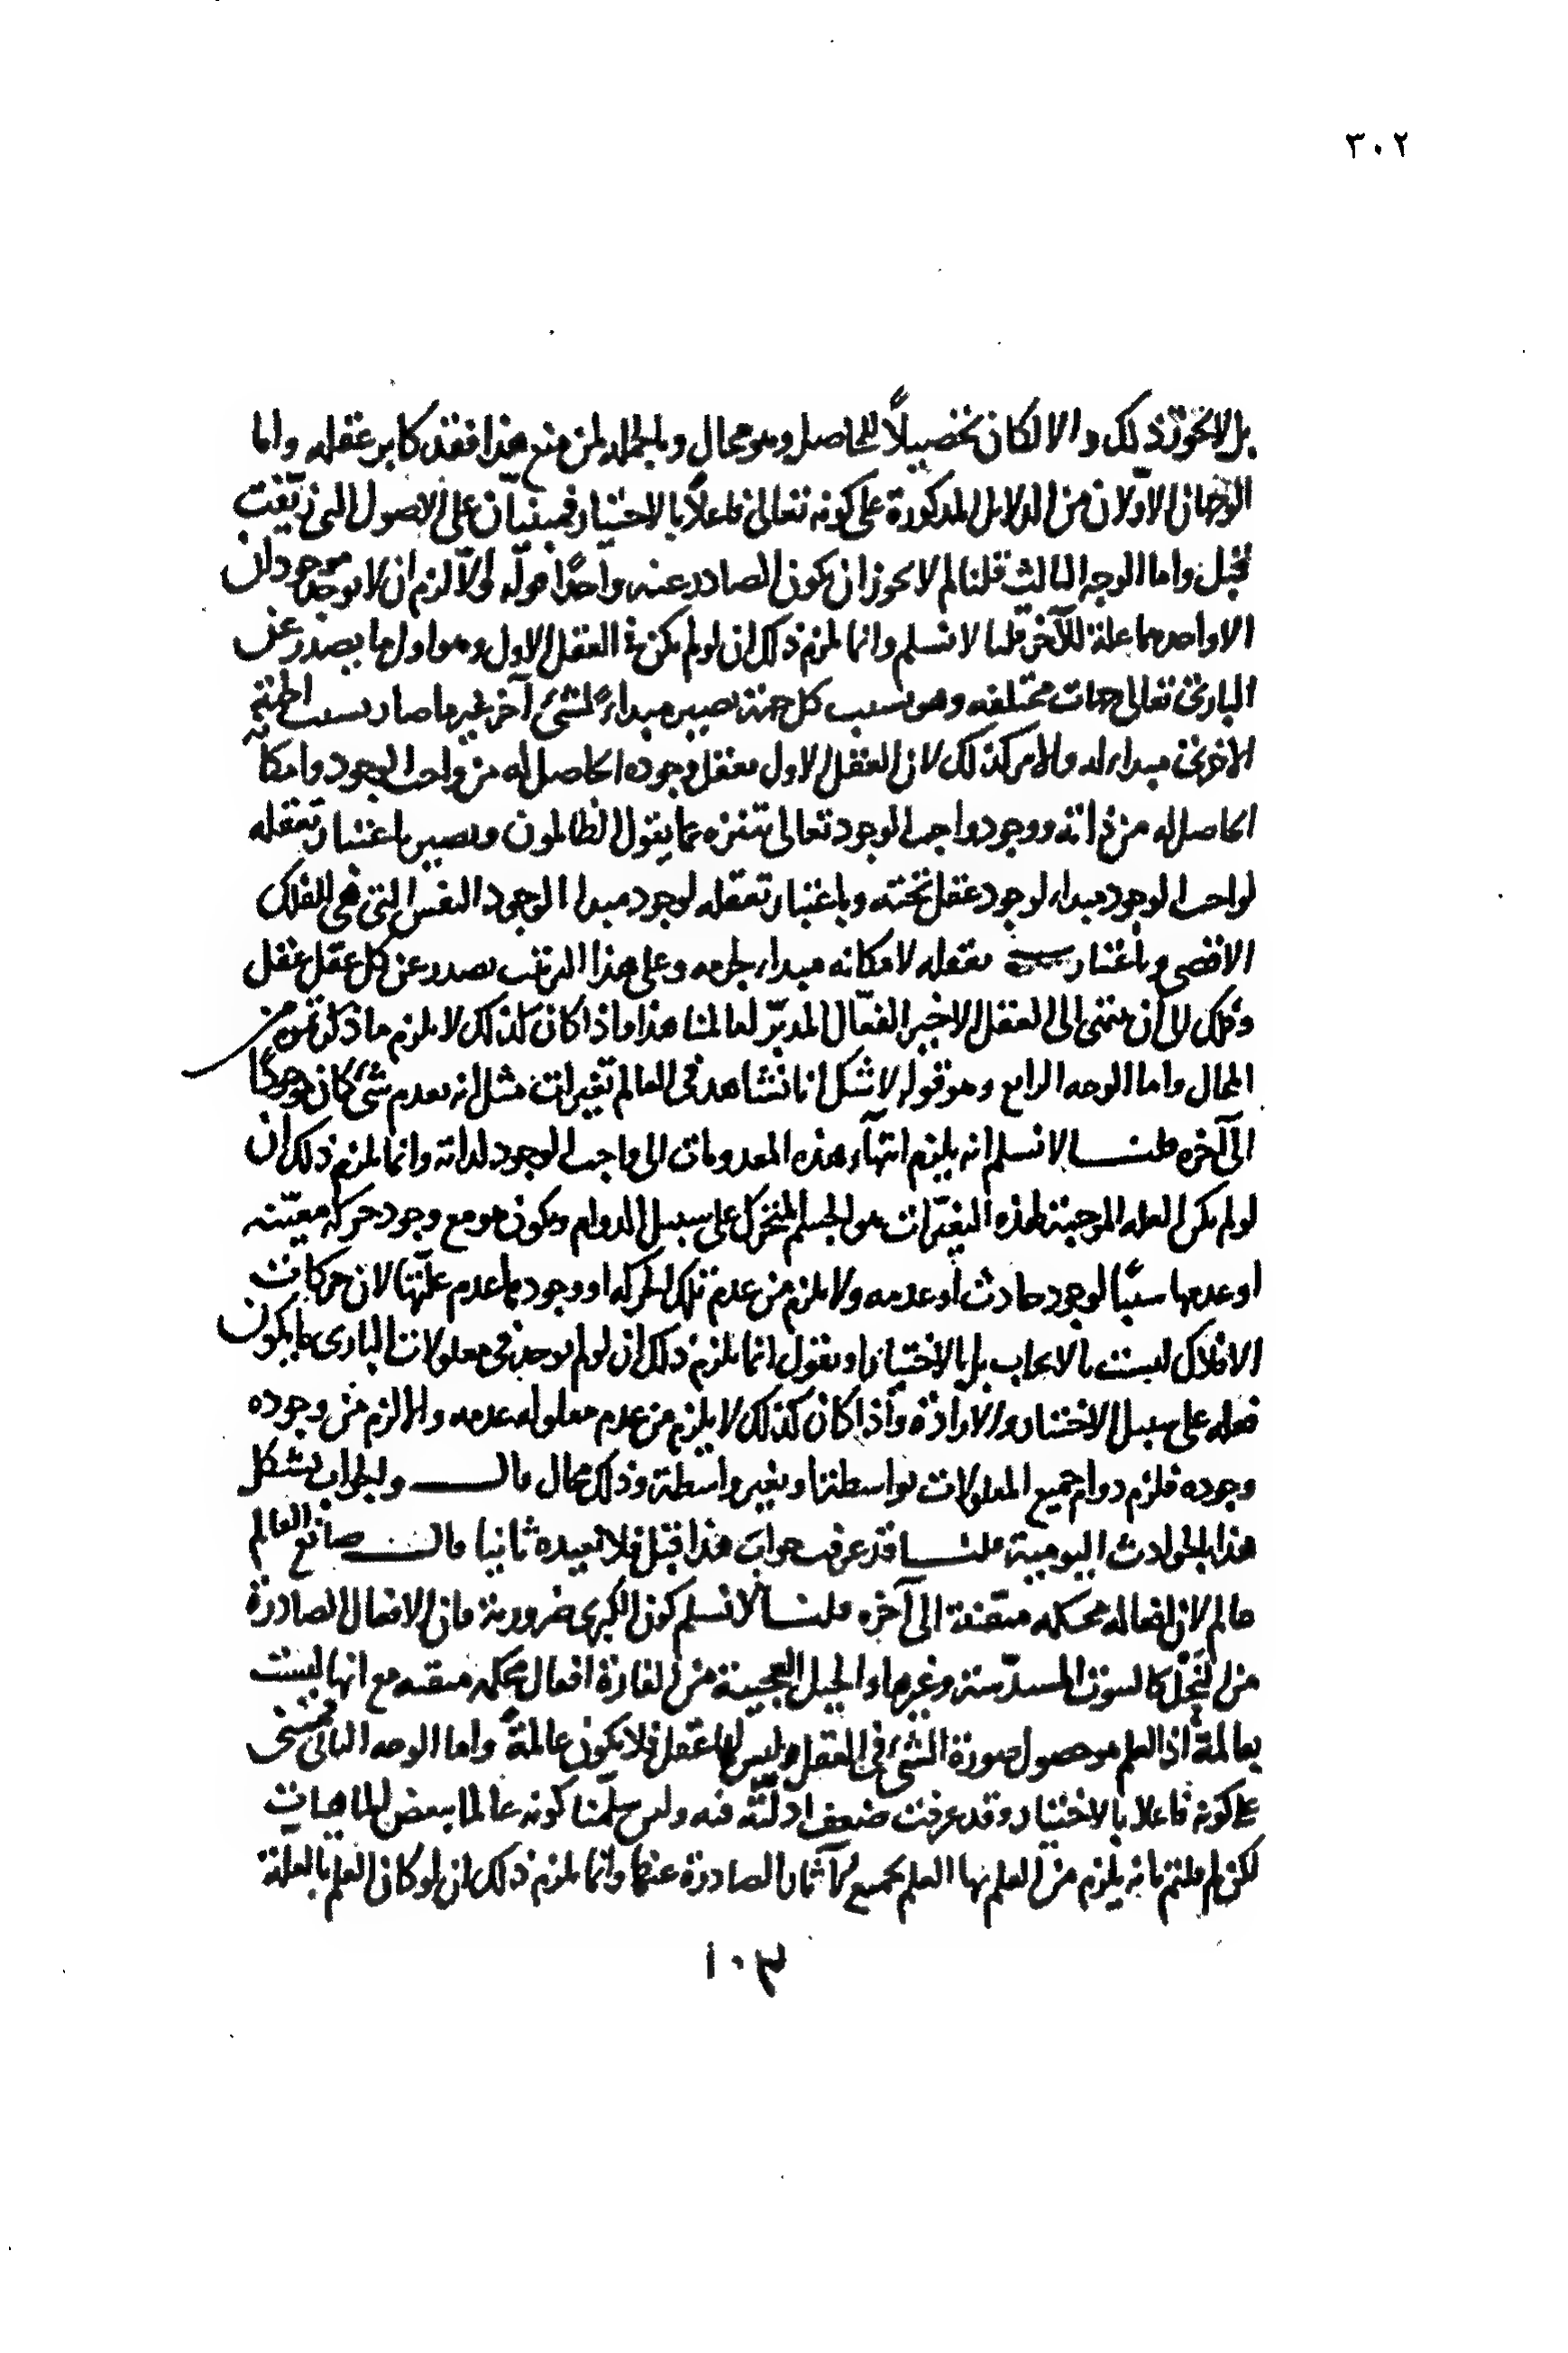 ٣٠٢
بل لا يجوز ذلك والا لكان تحصيلاً للحاصل وهو محال وبالجملة لمن منع هذا فقد كابر عقله واما
الوجهان الاوّلان من الدلايل المذكورة على كونه تعالى فاعلاً بالاختيار فمبنيان على الاصول التى زيّفت
قبل واما الوجه الثالث قلنا لم لا يجوز ان يكون الصادر عنه واحدًا قوله اولا لزم ان لا يوجد موجودان
الا واحدهما علة للآخر قلنا لا نسلم وانما يلزم ذلك ان لو لم يكن فى العقل الاول وهو اول ما يصدر عن
البارئ تعالى جهات مختلفه وهو بسبب كل جهة يصير مبداءً لشئ آخر غير ما صار بسبب الجهة
الاخرى مبداء له والامر كذلك لان العقل الاول يعقل وجوده الحاصل له من واجب الوجود وامكانه
الحاصل له من ذاته ووجود واجب الوجود تعالى تنزه عما يقول الظالمون ويصير باعتبار تعقله
لواجب الوجود مبداء لوجود عقل تحته وباعتبار تعقله لوجوده مبداء لوجود النفس التى هى للفلك
الاقصى وباعتبار تعقله لامكانه مبداء لجرمه وعلى هذا الترتيب يصدر عن كل عقل عقل
وفلك الى ان ينتهى الى العقل الاخير الفعّال المدبّر لعالمنا هذا واذا كان كذلك لا يلزم ما ذكرتموه من
المحال واما الوجه الرابع وهو قوله لا شك انا نشاهد فى العالم تغيرات مثل انه يعدم شئ كان موجودًا
الى آخره قلنا لا نسلم انه يلزم انتهاء هذه المعدومات الى واجب الوجود لذاته وانما يلزم ذلك ان
لو لم يكن العلة الموجبة لهذه التغيّرات هو الجسم المتحرك على سبيل الدوام ويكون هو مع وجود حركة معيّنه
او عدمها سببًا لوجود حادث او عدمه ولا يلزم من عدم تلك الحركه او وجودها عدم علّتها لان حركات
الافلاك ليست بالايجاب بل بالاختيار او نقول انما يلزم ذلك ان لو لم يوجد فى معلولات البارى ما يكون
فعله على سبيل الاختيار والارادة واذا كان كذلك لا يلزم من عدم معلوله عدمه والا لزم من وجوده
وجوده فلزم دوام جميع المعلولات بواسطة او بغير واسطة وذلك محال قال والجواب يشكل
هذا بالحوادث اليومية قلنا قد عرفت جواب هذا قبل فلا نعيده ثانيا قال صانع العالم
عالم لان افعاله محكمه متقنة الى آخره قلنا لا نسلم كون الكبرى ضرورية فان الافعال الصادرة
من النحل كالبيوت المسدّسة وغيرها والحيل العجيبة من الفارة افعال محكمه متقنه مع انها ليست
بعالمة اذ العلم هو حصول صورة الشئ فى العقل وليس لها عقل فلا يكون عالمة واما الوجه الثانى فمبنىّ
على كونه فاعلا بالاختيار وقد عرفت ضعف ادلّته فيه ولئن سلّمنا كونه عالما ببعض الماهيات
لكن لم قلتم بانه يلزم من العلم بها العلم بجميع الآثار الصادرة عنها وانما يلزم ذلك ان لو كان العلم بالعلة
١٠٣